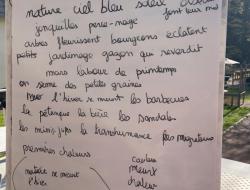 nature ciel bleu soleil
font leur nid
jonquilles perce-neige
arbres fleurissent bourgeons éclatent
petits jardinage gazon qui reverdit
mars labour de printemps
on sème des petites graines
l'hiver se meurt les barbecues
la pétanque la bière les sandales
les mini jupes la transhumance les migrateurs
premières chaleurs
couleur
meurt
chaleur
nature se meurt